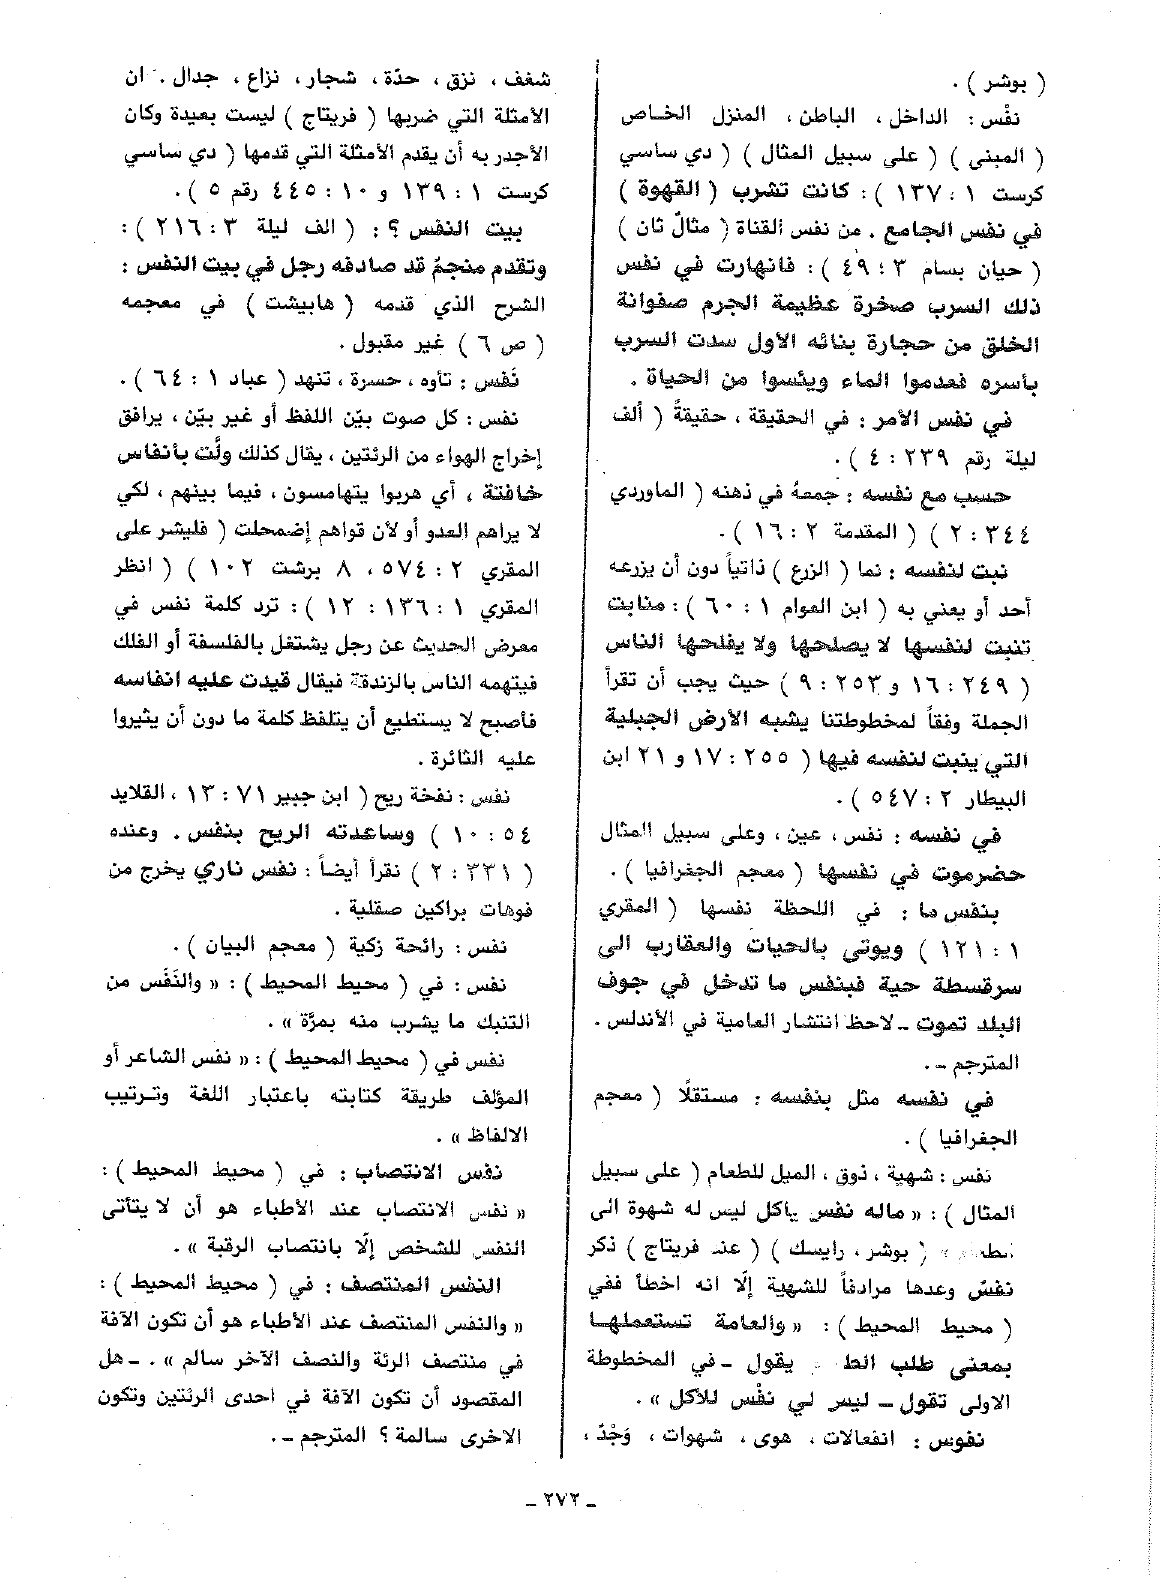 ( بوشر ) .
نفْس : الداخل ، الباطن ، المنزل الخاص
( المبنى ) ( على سبيل المثال ) ( دي ساسي
كرست ١ : ١٣٧ ) : كانت تشرب ( القهوة )
في نفس الجامع . من نفس القناة ( مثالٌ ثان )
( حيان بسام ٣ : ٤٩ ) : فانهارت في نفس
ذلك السرب صخرة عظيمة الجرم صفوانة
الخلق من حجارة بنائه الأول سدت السرب
بأسره فعدموا الماء ويئسوا من الحياة .
في نفس الأمر : في الحقيقة ، حقيقةً ( ألف
ليلة رقم ٢٣٩ : ٤ ) .
حسب مع نفسه : جمعهُ في ذهنه ( الماوردي
٣٤٤ : ٢ ) ( المقدمة ٢ : ١٦ ) .
نبت لنفسه : نما ( الزرع ) ذاتياً دون أن يزرعه
أحد أو يعني به ( ابن العوام ١ : ٦٠ ) : منابت
تنبت لنفسها لا يصلحها ولا يفلحها الناس
( ٢٤٩ : ١٦ و ٢٥٣ : ٩ ) حيث يجب أن تقرأ
الجملة وفقاً لمخطوطتنا يشبه الأرض الجبلية
التي ينبت لنفسه فيها ( ٢٥٥ : ١٧ و ٢١ ابن
البيطار ٢ : ٥٤٧ ) .
في نفسه : نفس ، عين ، وعلى سبيل المثال
حضرموت في نفسها ( معجم الجغرافيا ) .
بنفس ما : في اللحظة نفسها ( المقري
١ : ١٢١ ) ويوتى بالحيات والعقارب الى
سرقسطة حية فبنفس ما تدخل في جوف
البلد تموت ــ لاحظ انتشار العامية في الأندلس .
المترجم ــ .
في نفسه مثل بنفسه : مستقلًا ( معجم
الجغرافيا ) .
نفس : شهية ، ذوق ، الميل للطعام ( على سبيل
المثال ) : « ماله نفس ياكل ليس له شهوة الى
» ( بوشر ، رايسك ) ( عند فريتاج ) ذكر
نفسٌ وعدها مرادفاً للشهية إلّا انه اخطأ ففي
( محيط المحيط ) : « والعامة تستعملها
بمعنى طلب يقول ــ في المخطوطة
الاولى تقول ــ ليس لي نفْس للأكل » .
نفوس : انفعالات ، هوى ، شهوات ، وَجْدٌ ،
شغف ، نزق ، حدّة ، شجار ، نزاع ، جدال . ان
الأمثلة التي ضربها ( فريتاج ) ليست بعيدة وكان
الأجدر به أن يقدم الأمثلة التي قدمها ( دي ساسي
كرست ١ : ١٣٩ و ١٠ : ٤٤٥ رقم ٥ ) .
بيت النفس ؟ : ( الف ليلة ٣ : ٢١٦ ) :
وتقدم منجمٌ قد صادفه رجل في بيت النفس :
الشرح الذي قدمه ( هابيشت ) في معجمه
( ص ٦ ) غير مقبول .
نَفَس : تأوه ، حسرة ، تنهد ( عباد ١ : ٦٤ ) .
نفس : كل صوت بيّن اللفظ أو غير بيّن ، يرافق
إخراج الهواء من الرئتين ، يقال كذلك ولَّت بأنفاس
خافتة ، أي هربوا يتهامسون ، فيما بينهم ، لكي
لا يراهم العدو أو لأن قواهم إضمحلت ( فليشر على
المقري ٢ : ٥٧٤ ، ٨ برشت ١٠٢ ) ( انظر
المقري ١ : ١٣٦ : ١٢ ) : ترد كلمة نفس في
معرض الحديث عن رجل يشتغل بالفلسفة أو الفلك
فيتهمه الناس بالزندقة فيقال قيدت عليه انفاسه
فأصبح لا يستطيع أن يتلفظ كلمة ما دون أن يثيروا
عليه الثائرة .
نفس : نفخة ريح ( ابن جبير ٧١ : ١٣ ، القلايد
٥٤ : ١٠ ) وساعدته الريح بنفس . وعنده
( ٣٣١ : ٢ ) نقرأ أيضاً : نفس ناري يخرج من
فوهات براكين صقلية .
نفس : رائحة زكية ( معجم البيان ) .
نفس : في ( محيط المحيط ) : « والنَفَس من
التنبك ما يشرب منه بمرَّة » .
نفس في ( محيط المحيط ) : « نفس الشاعر أو
المؤلف طريقة كتابته باعتبار اللغة وترتيب
الالفاظ » .
نفس الانتصاب : في ( محيط المحيط ) :
« نفس الانتصاب عند الأطباء هو أن لا يتأتى
النفس للشخص إلّا بانتصاب الرقبة » .
النفس المنتصف : في ( محيط المحيط ) :
« والنفس المنتصف عند الأطباء هو أن تكون الآفة
في منتصف الرئة والنصف الآخر سالم » . ــ هل
المقصود أن تكون الآفة في احدى الرئتين وتكون
الاخرى سالمة ؟ المترجم ــ .
ــ ٢٧٢ ــ